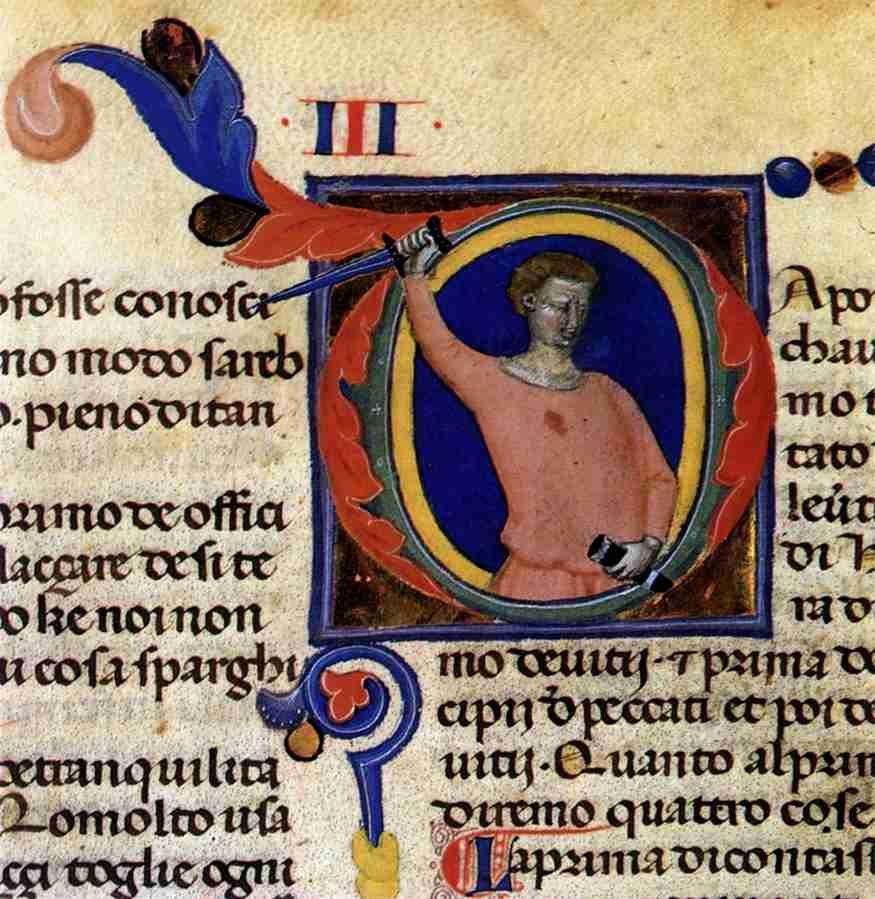 · III ·
fosse conosci
no modo sareb
o. pieno di tan
primo de offici
laccare de si te
o ke noi non
u cosa sparghi
et tranquilita
Lo molto usa
cci toglie ogni
Apo
chau
mo t
tato
di
ra d
mo de uitij · 7 prima de
cipij d peccati et poi de
uitij · Quanto al prim
diremo quattro cose
La prima di contast